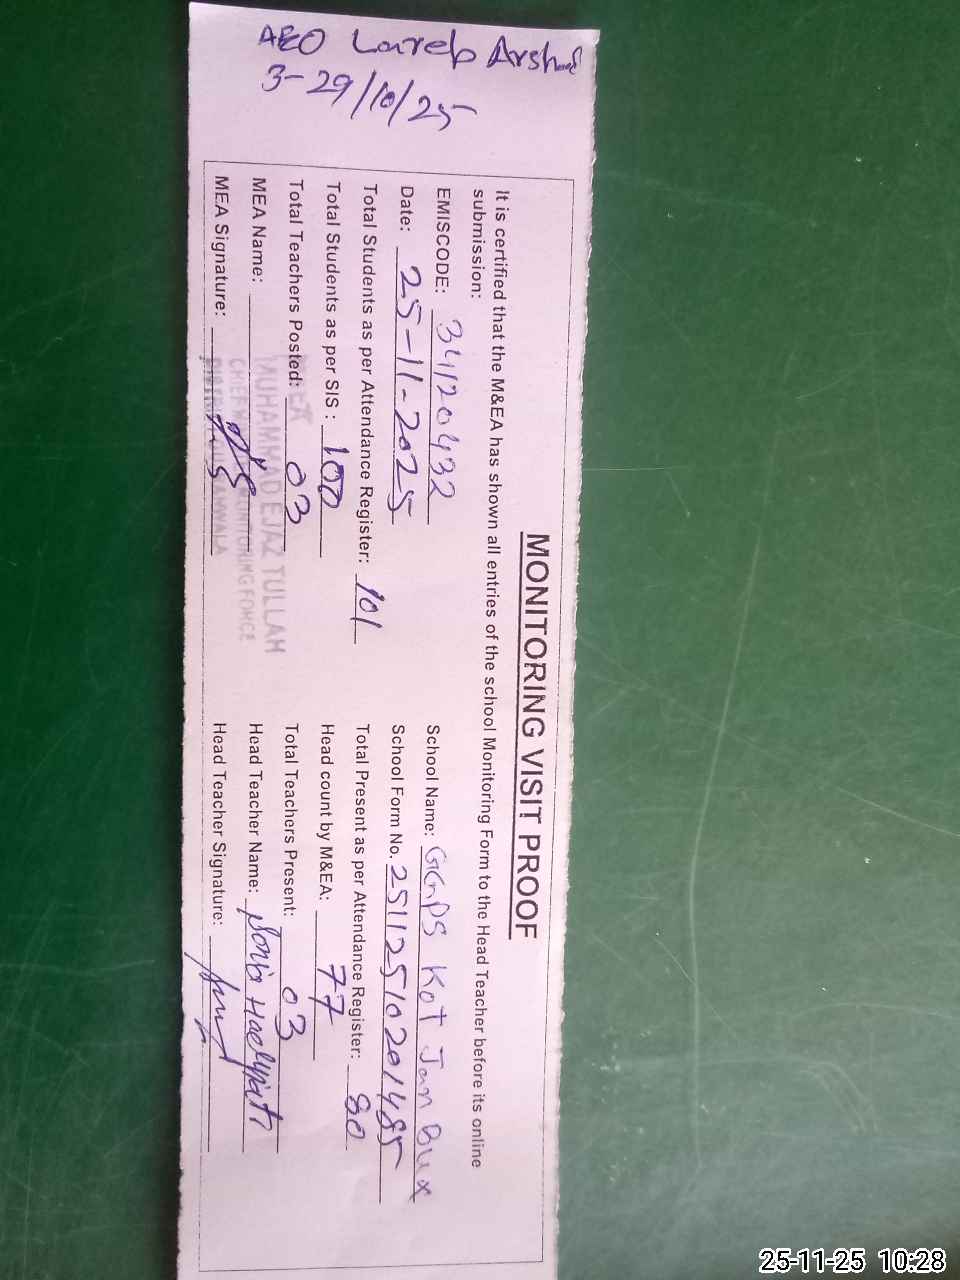 AEO Lareb Arshad
3-29/10/25
MONITORING VISIT PROOF
It is certified that the M&EA has shown all entries of the school Monitoring Form to the Head Teacher before its online
submission:
EMISCODE: 34120432 School Name: GGMPS Kot Jan Bux
Date: 25-11-2025 School Form No. 25112510201485
Total Students as per Attendance Register: 101 Total Present as per Attendance Register: 80
Total Students as per SIS : 100 Head count by M&EA: 77
Total Teachers Posted: 03 Total Teachers Present: 03
MEA Name: MUHAMMAD EJAZ TULLAH Head Teacher Name: Sonia
MEA Signature: Head Teacher Signature:
MONITORING FORCE
25-11-25 10:28